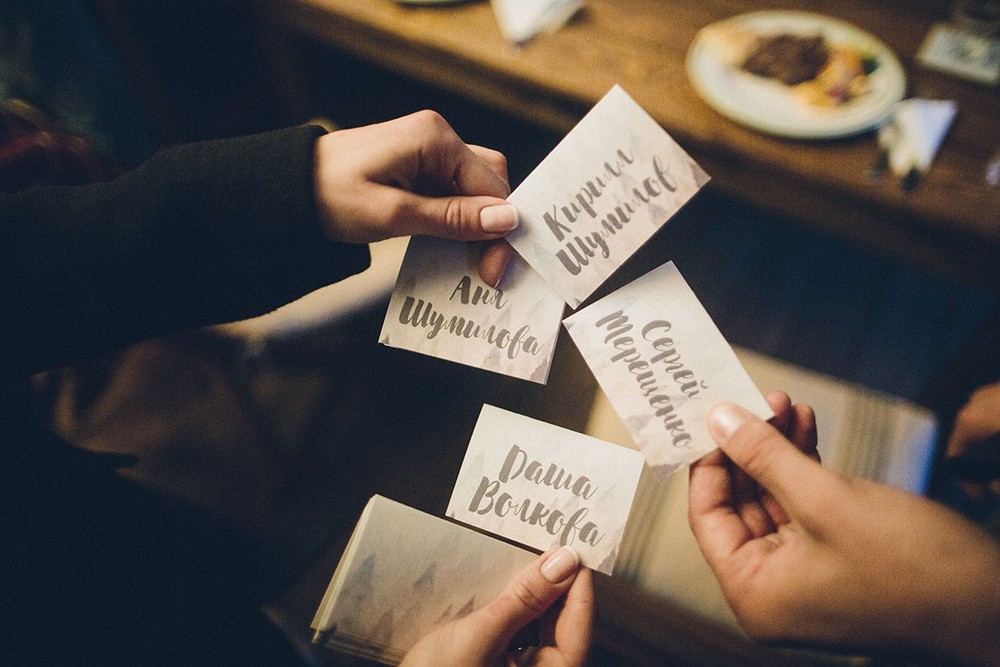 Кирилл
Шумилов
Аня
Шумилова
Сергей
Терещенко
Даша
Волкова